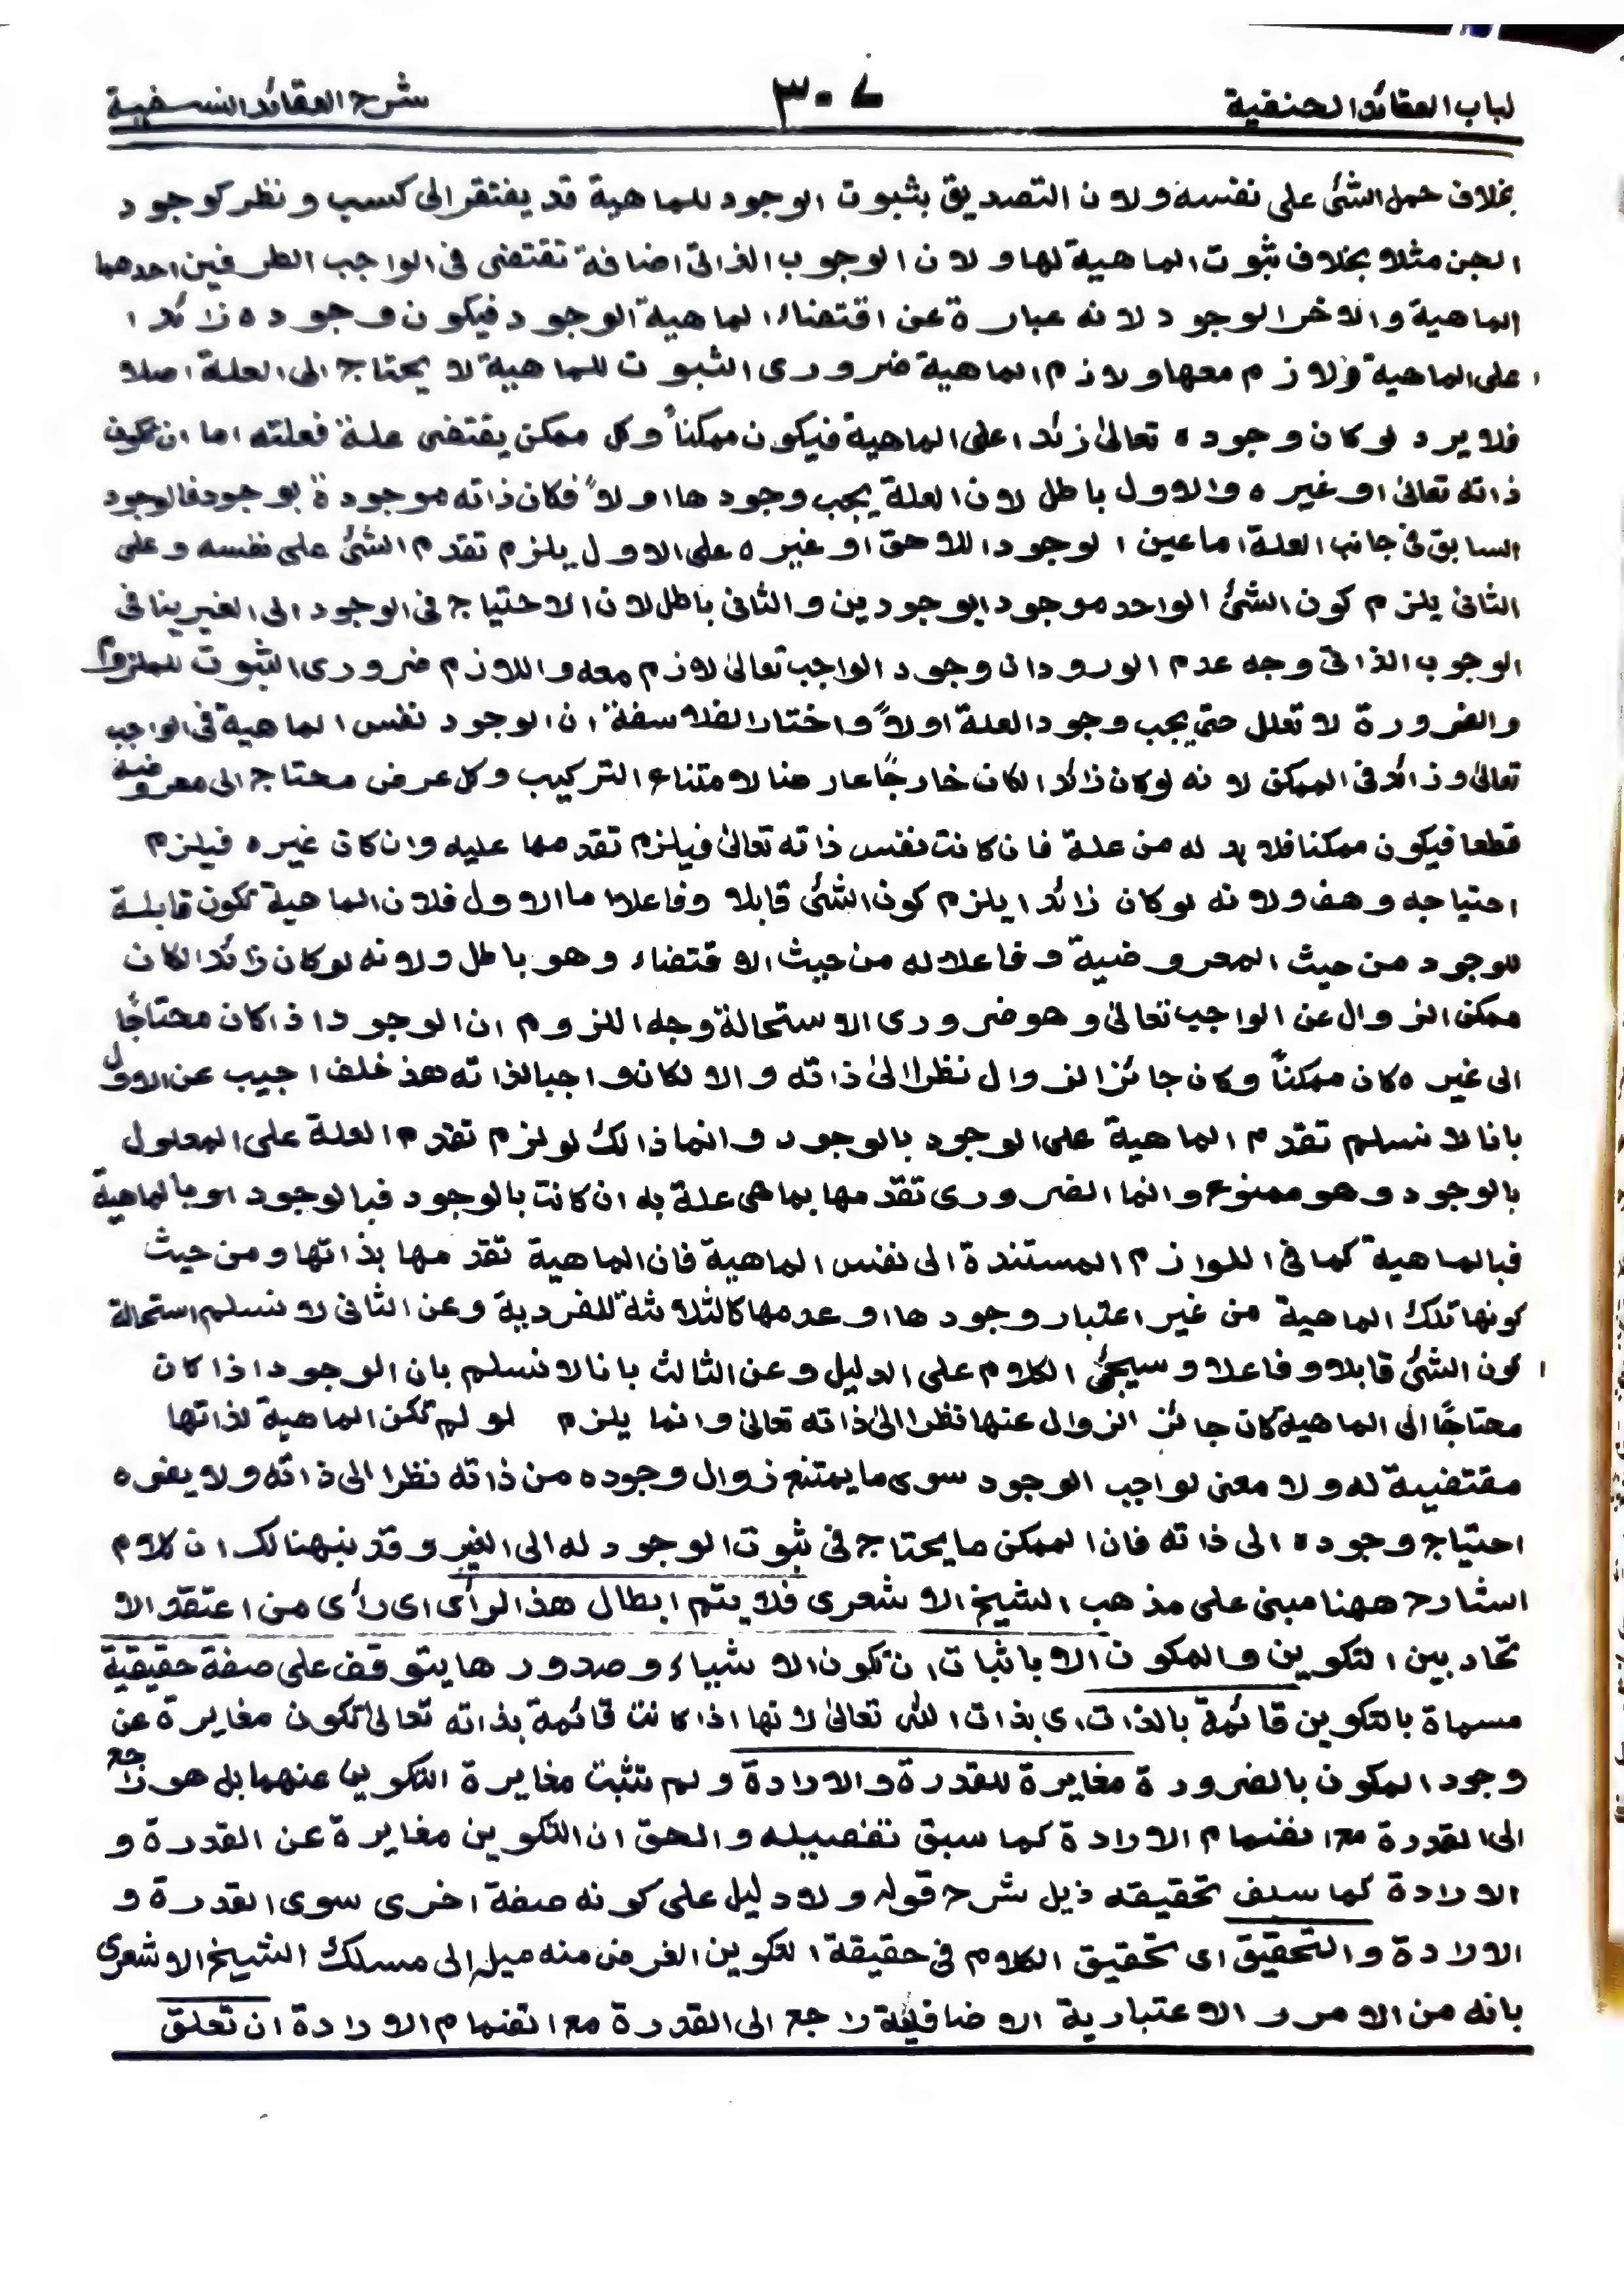 لباب العقائد الحنفية ٣٠٧ شرح العقائد النسفية
بخلاف حمل الشئ على نفسه ولان التصديق بثبوت الوجود للماهية قد يفتقر الى كسب ونظر كوجود
الجن مثلا بخلاف ثبوت الماهية لها ولان الوجوب الذاتى اضافة تقتضى فى الواجب الطرفين احدهما
الماهية والاخر الوجود لانه عبارة عن اقتضاء الماهية الوجود فيكون وجوده زائدا
على الماهية ولازم معها ولازم الماهية ضرورى الثبوت للماهية لا يحتاج الى العلة اصلا
فلا يرد لو كان وجوده تعالىٰ زائدا على الماهية فيكون ممكناً وكل ممكن يقتضى علة فعلته اما ان تكون
ذاته تعالىٰ او غيره والاول باطل لان العلة يجب وجودها اولاً فكان ذاته موجودة بوجود فالوجود
السابق فى جانب العلة اما عين الوجود اللاحق او غيره على الاول يلزم تقدم الشئ على نفسه وعلى
الثانى يلزم كون الشئ الواحد موجودا بوجودين والثانى باطل لان الاحتياج فى الوجود الى الغير ينافى
الوجوب الذاتى وجه عدم الورود ان وجود الواجب تعالىٰ لازم معه واللازم ضرورى الثبوت للملزوم
والضرورة لا تعلل حتى يجب وجود العلة اولاً واختار الفلاسفة ان الوجود نفس الماهية فى الواجب
تعالىٰ وزائد فى الممكن لانه لو كان زائدا لكان خارجًا عارضا لامتناع التركيب وكل عرض محتاج الى معروضية
قطعا فيكون ممكنا فلا بد له من علة فان كانت نفس ذاته تعالىٰ فيلزم تقدمها عليه وان كان غيره فيلزم
احتياجه وهف ولانه لو كان زائدا يلزم كون الشئ قابلا وفاعلا اما الاول فلان الماهية تكون قابلة
للوجود من حيث المعروضية وفاعلا له من حيث الاقتضاء وهو باطل ولانه لو كان زائدا لكان
ممكن الزوال عن الواجب تعالىٰ وهو ضرورى الاستحالة وجه اللزوم ان الوجود اذا كان محتاجًا
الى غيره كان ممكناً وكان جائز الزوال نظرا الىٰ ذاته والا لكان واجبا لذاته هذ خلف اجيب عن الاول
بانا لا نسلم تقدم الماهية على الوجود بالوجود وانما ذالك لو لزم تقدم العلة على المعلول
بالوجود وهو ممنوع وانما الضرورى تقدمها بما هى علة به ان كانت بالوجود فبالوجود او بالماهية
فبالماهية كما فى اللوازم المستندة الى نفس الماهية فان الماهية تقدمها بذاتها ومن حيث
كونها تلك الماهية من غير اعتبار وجودها او عدمها كالثلاثة للفردية وعن الثانى لا نسلم استحالة
كون الشئ قابلا وفاعلا وسيجئ الكلام على الدليل وعن الثالث بانا لا نسلم بان الوجود اذا كان
محتاجًا الى الماهية كان جائز الزوال عنها نظرا الىٰ ذاته تعالىٰ وانما يلزم لو لم تكن الماهية لذاتها
مقتضية له ولا معنى لواجب الوجود سوى ما يمتنع زوال وجوده من ذاته نظرا الى ذاته ولا يضره
احتياج وجوده الى ذاته فان الممكن ما يحتاج فى ثبوت الوجود له الى الغير وقد نبهنالك ان كلام
الشارح ههنا مبنى على مذهب الشيخ الاشعرى فلا يتم ابطال هذ الرأى اى رأى من اعتقد الا
تحاد بين التكوين والمكون الا باثبات ان تكون الاشياء وصدورها يتوقف على صفة حقيقية
مسماة بالتكوين قائمة بالذات اى بذات الله تعالىٰ لانها اذا كانت قائمة بذاته تعالىٰ تكون مغايرة عن
وجود المكون بالضرورة مغايرة للقدرة والارادة ولم تثبت مغايرة التكوين عنهما بل هو راجع
الى القدرة مع انضمام الارادة كما سبق تفصيله والحق ان التكوين مغايرة عن القدرة و
الارادة كما سبق تحقيقه ذيل شرح قوله ولا دليل على كونه صفة اخرى سوى القدرة و
الارادة والتحقيق اى تحقيق الكلام فى حقيقة التكوين الغرض منه ميل الى مسلك الشيخ الاشعرى
بانه من الامور الاعتبارية الاضافية راجع الى القدرة مع انضمام الارادة ان تعلق